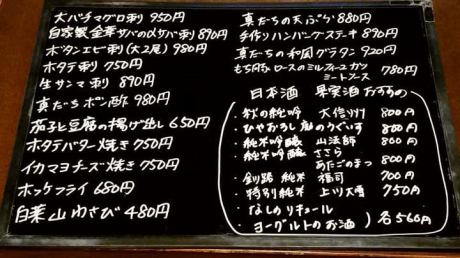 大バチマグロ刺 950円
自家製金華サバの〆サバ刺 890円
ボタンエビ刺(大2尾) 980円
ホタテ刺 750円
生サンマ刺 890円
真だちポン酢 980円
茄子と豆腐の揚げ出し 650円
ホタテバター焼き 750円
イカマヨチーズ焼き 750円
ホッケフライ 680円
白菜山わさび 480円
真だちの天ぷら 880円
手作りハンバーグステーキ 890円
真だちの和風グラタン 920円
もち豚ロースのミルフィーユカツ
ミートソース 780円
日本酒 果実酒 おすすめ
・秋の純吟 大信州 800円
・ひやおろし 庭のうぐいす 800円
・純米吟醸 山法師 800円
・純米吟醸 ささら
あたごのまつ 800円
・釧路 純米 福司 700円
・特別純米 上川大雪 750円
・なしのリキュール
・ヨーグルトのお酒 )各560円